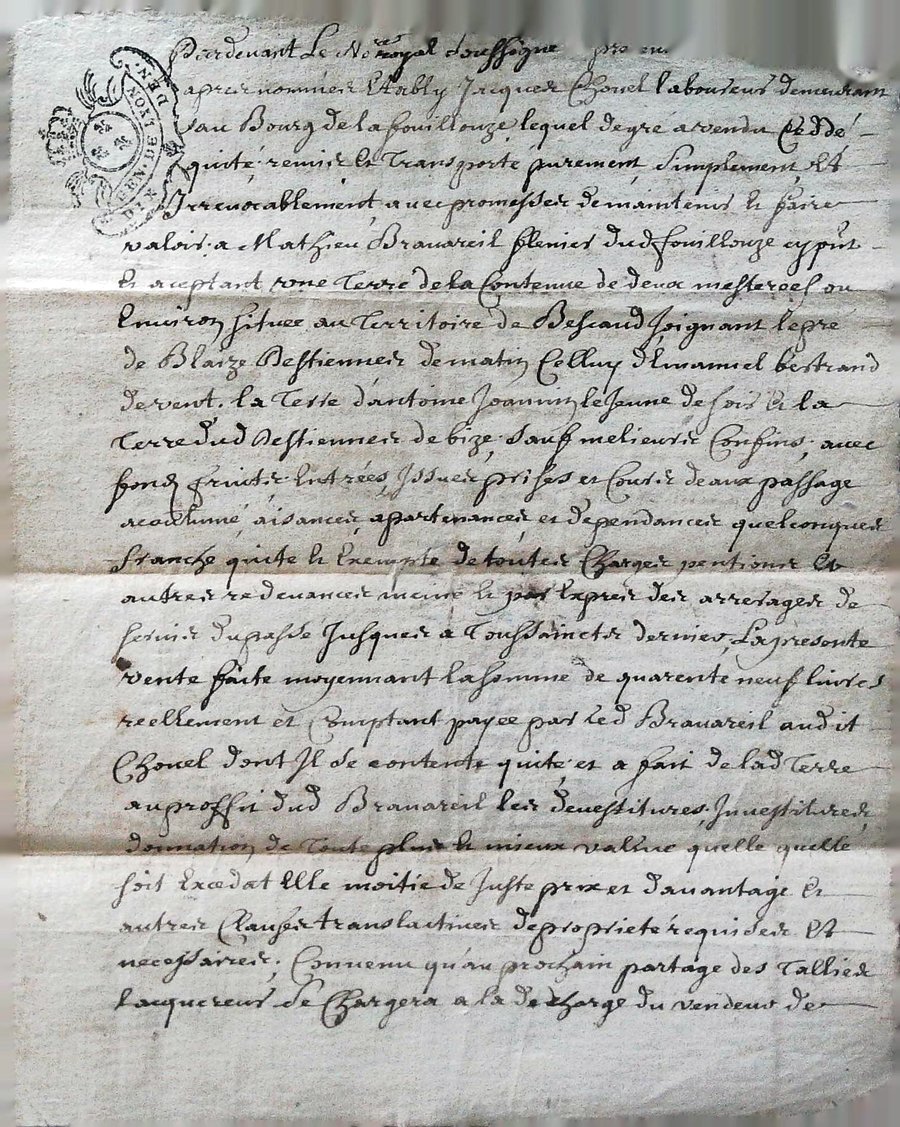 GEN. DE LYON
DIX DEN.
Pardevant Le No.re royal soussigne pre en
apres nommes Estably Jacques Chouel laboureur demeurant
au Bourg de la fouillouze lequel de gré a vendu Ceddé
quité remis et Transporté purement, Simplement, Et
Irrevocablement, avec promesses de maintenir et faire
valoir, a Mathieu Bravareil dud fouillouze cy pñt
et aceptant, une Terre de la Contenue de deux mesterees ou
Environ située au Territoire de Besçaud Joignant le pré
de Blaize Bestiennes de matin Celluy d'Emanuel bertrand
de vent, la Terre d'antoine Joannin le Jeune de soir et la
Terre dud Bestiennes de bize, sauf melieurs Confins, avec
fond, fruits, Entrées, Issues, prises et Cours deaux passage
acoutumé, aisances, apartenances, et dependances quelconques
franche quite et Exempte de toutes Charges pentions et
autres redevances meme et par Expres des arrerages de
servis du passé Jusques a Toussaincts dernier, La presente
vente faite moyennant la somme de quarente neuf livres
reellement et Comptant payée par led Bravareil audit
Chouel dont Il se contente quite, et a fait de lad Terre
au proffit dud Bravareil les devestitures, Investitures,
donnation de Toute plus et mieux vallue quelle quelle
soit Excedat Elle moitié de Juste prix et davantage et
autres Clauses translactives de proprieté requises Et
necessaires; Convenu qu'au prochain partage des Tallies
lacquereur se Chargera a la decharge du vendeur de